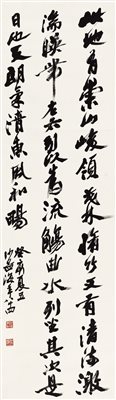 此地有崇山峻領茂林脩竹又有清流激
湍暎帶左右引以為流觴曲水列坐其次是
日也天朗氣清惠風和暢
癸亥夏五
沙孟海